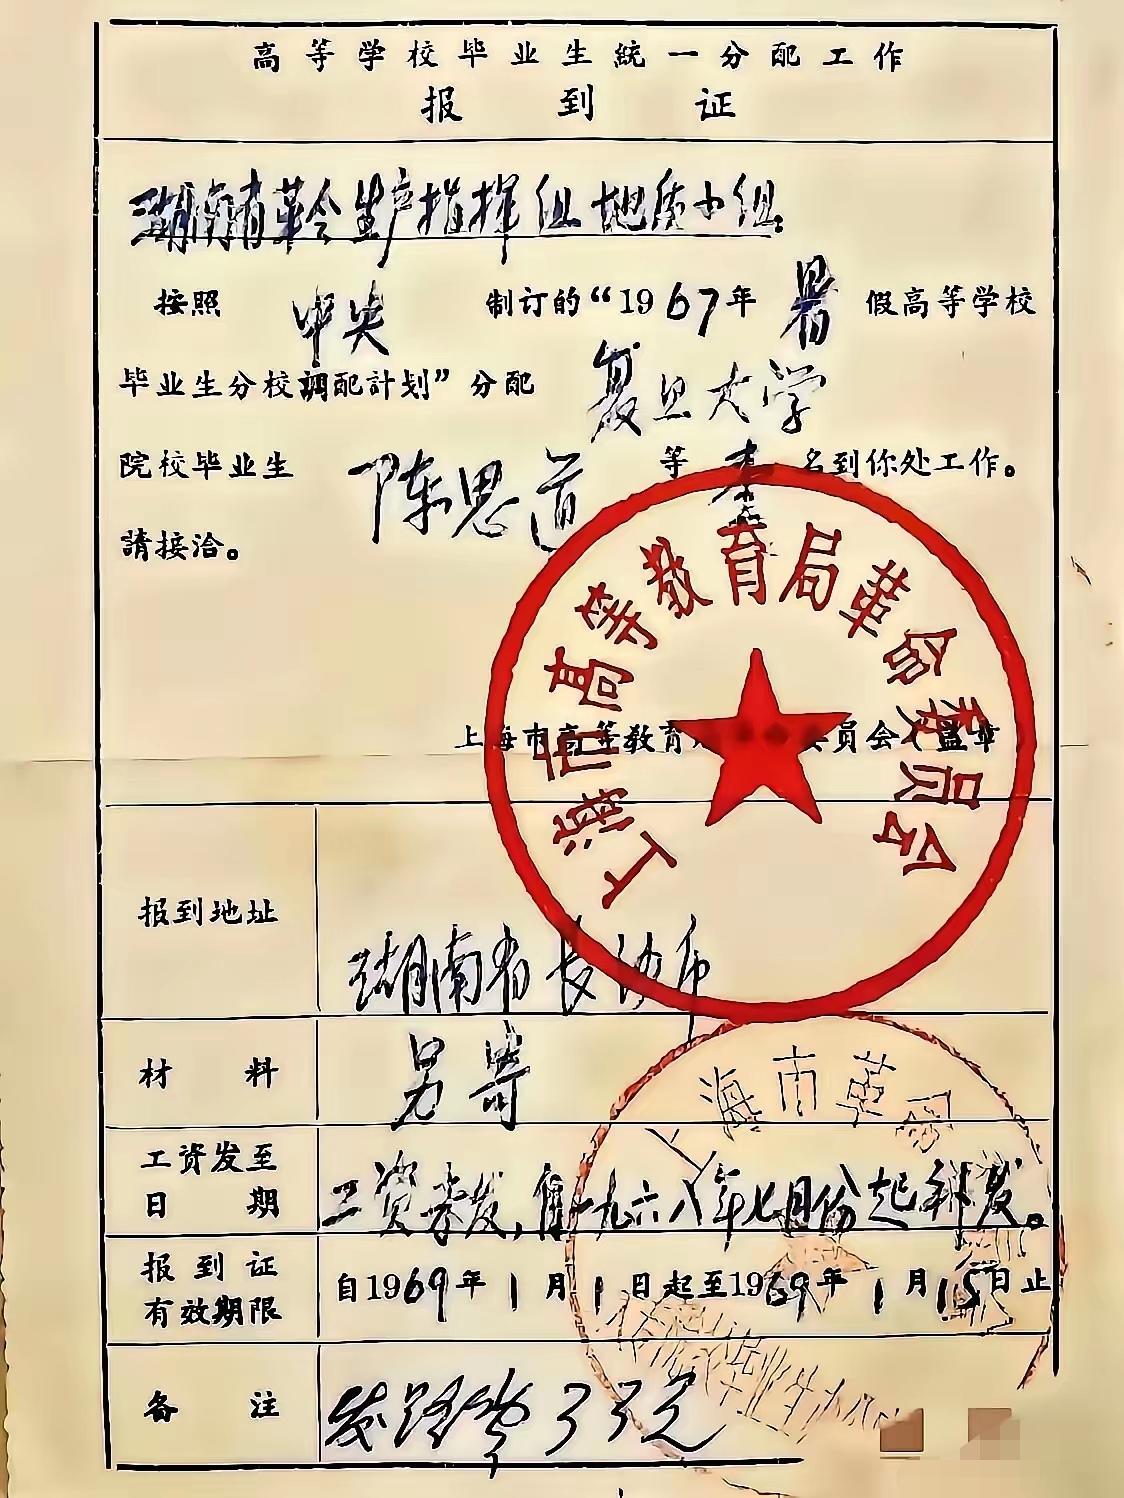 高等学校毕业生統一分配工作
报到证
湖南省革命生产指挥组地质小组
按照 中央 制订的“1967年 暑 假高等学校
毕业生分校調配計划”分配 复旦大学
院校毕业生 陈思道 等 壹 名到你处工作。
請接洽。
上海市高等教育局革命委员会
上海市高等教育 员会(盖章
报到地址 湖南省长沙市
材料 另寄
工资发至
日期 工资未发,自一九六八年七月份起补发。
报到证
有效期限 自1969年1月1日起至1969年1月15日止
上海市革
毕业生办公
备注 发路费33元